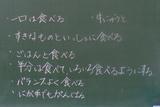 ・一口は食べる
・すきなものといっしょに食べる
・ごはんと食べる
・半分は食べて、いろいろ食べるように手る
・バランスよく食べる
・にが手でもがんばる